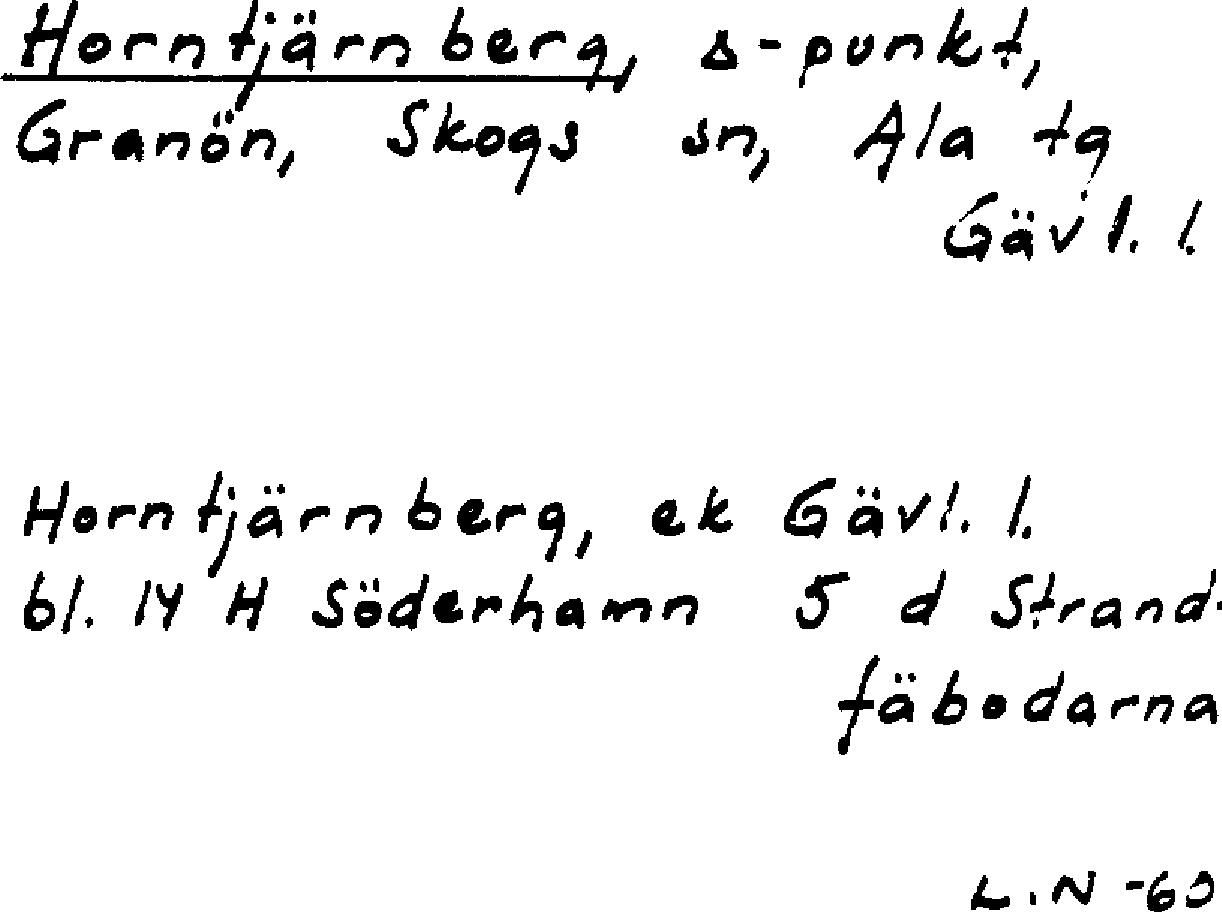 Horntjärnberg, s-punkt,
Granön, Skogs sn, Ala tg
Gävl. l.
Horntjärnberg, ek Gävl. l.
bl. 14 H Söderhamn 5 d Strand-
fäbodarna
L.N